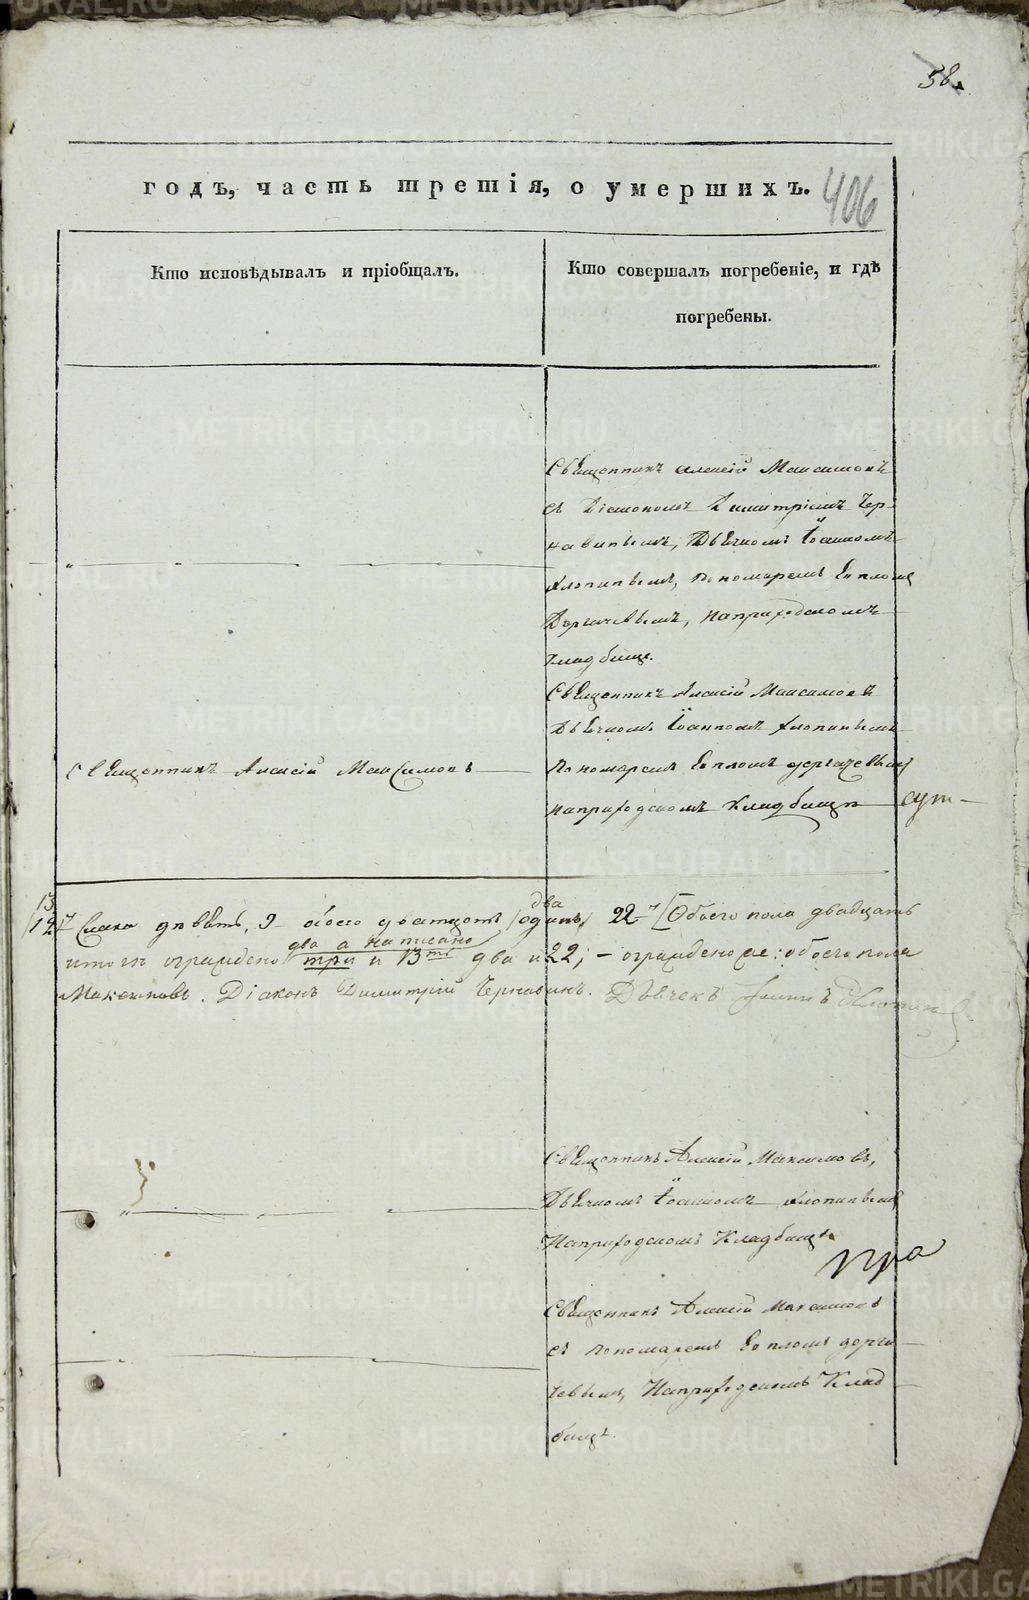 58
годъ, часть третія, о умершихъ.
406
Кто исповѣдывалъ и пріобщалъ.
Кто совершалъ погребеніе, и гдѣ
погребены.
Священникъ Алексій Максимовъ
съ Діакономъ Димитріемъ Чер-
навинымъ, Дьячкомъ Іоанномъ
Хлопинымъ, Пономаремъ Евпломъ
Дергачевымъ, на приходскомъ
кладбище.
Священникъ Алексій Максимовъ
Священникъ Алексій Максимовъ
Дьячкомъ Іоанномъ Хлопинымъ
Пономаремъ Евпломъ Дергачевымъ
на приходскомъ кладбищѣ
13
12
девять, 9 обоего двадцать
два
одинъ 22 Обоего пола двадцать
два а написано
три и 13 два и 22; обоего пола
Максимовъ. Діаконъ Димитрій Чернавинъ. Дьячекъ Хлопинъ
Священникъ Алексій Максимовъ,
Дьячкомъ Іоанномъ Хлопинымъ
На приходскомъ Кладбищѣ
Священникъ Алексій Максимовъ
съ Пономаремъ Евпломъ Дерга-
чевымъ, На приходскомъ Клад
бищѣ.
METRIKI.GASO-URAL.RU